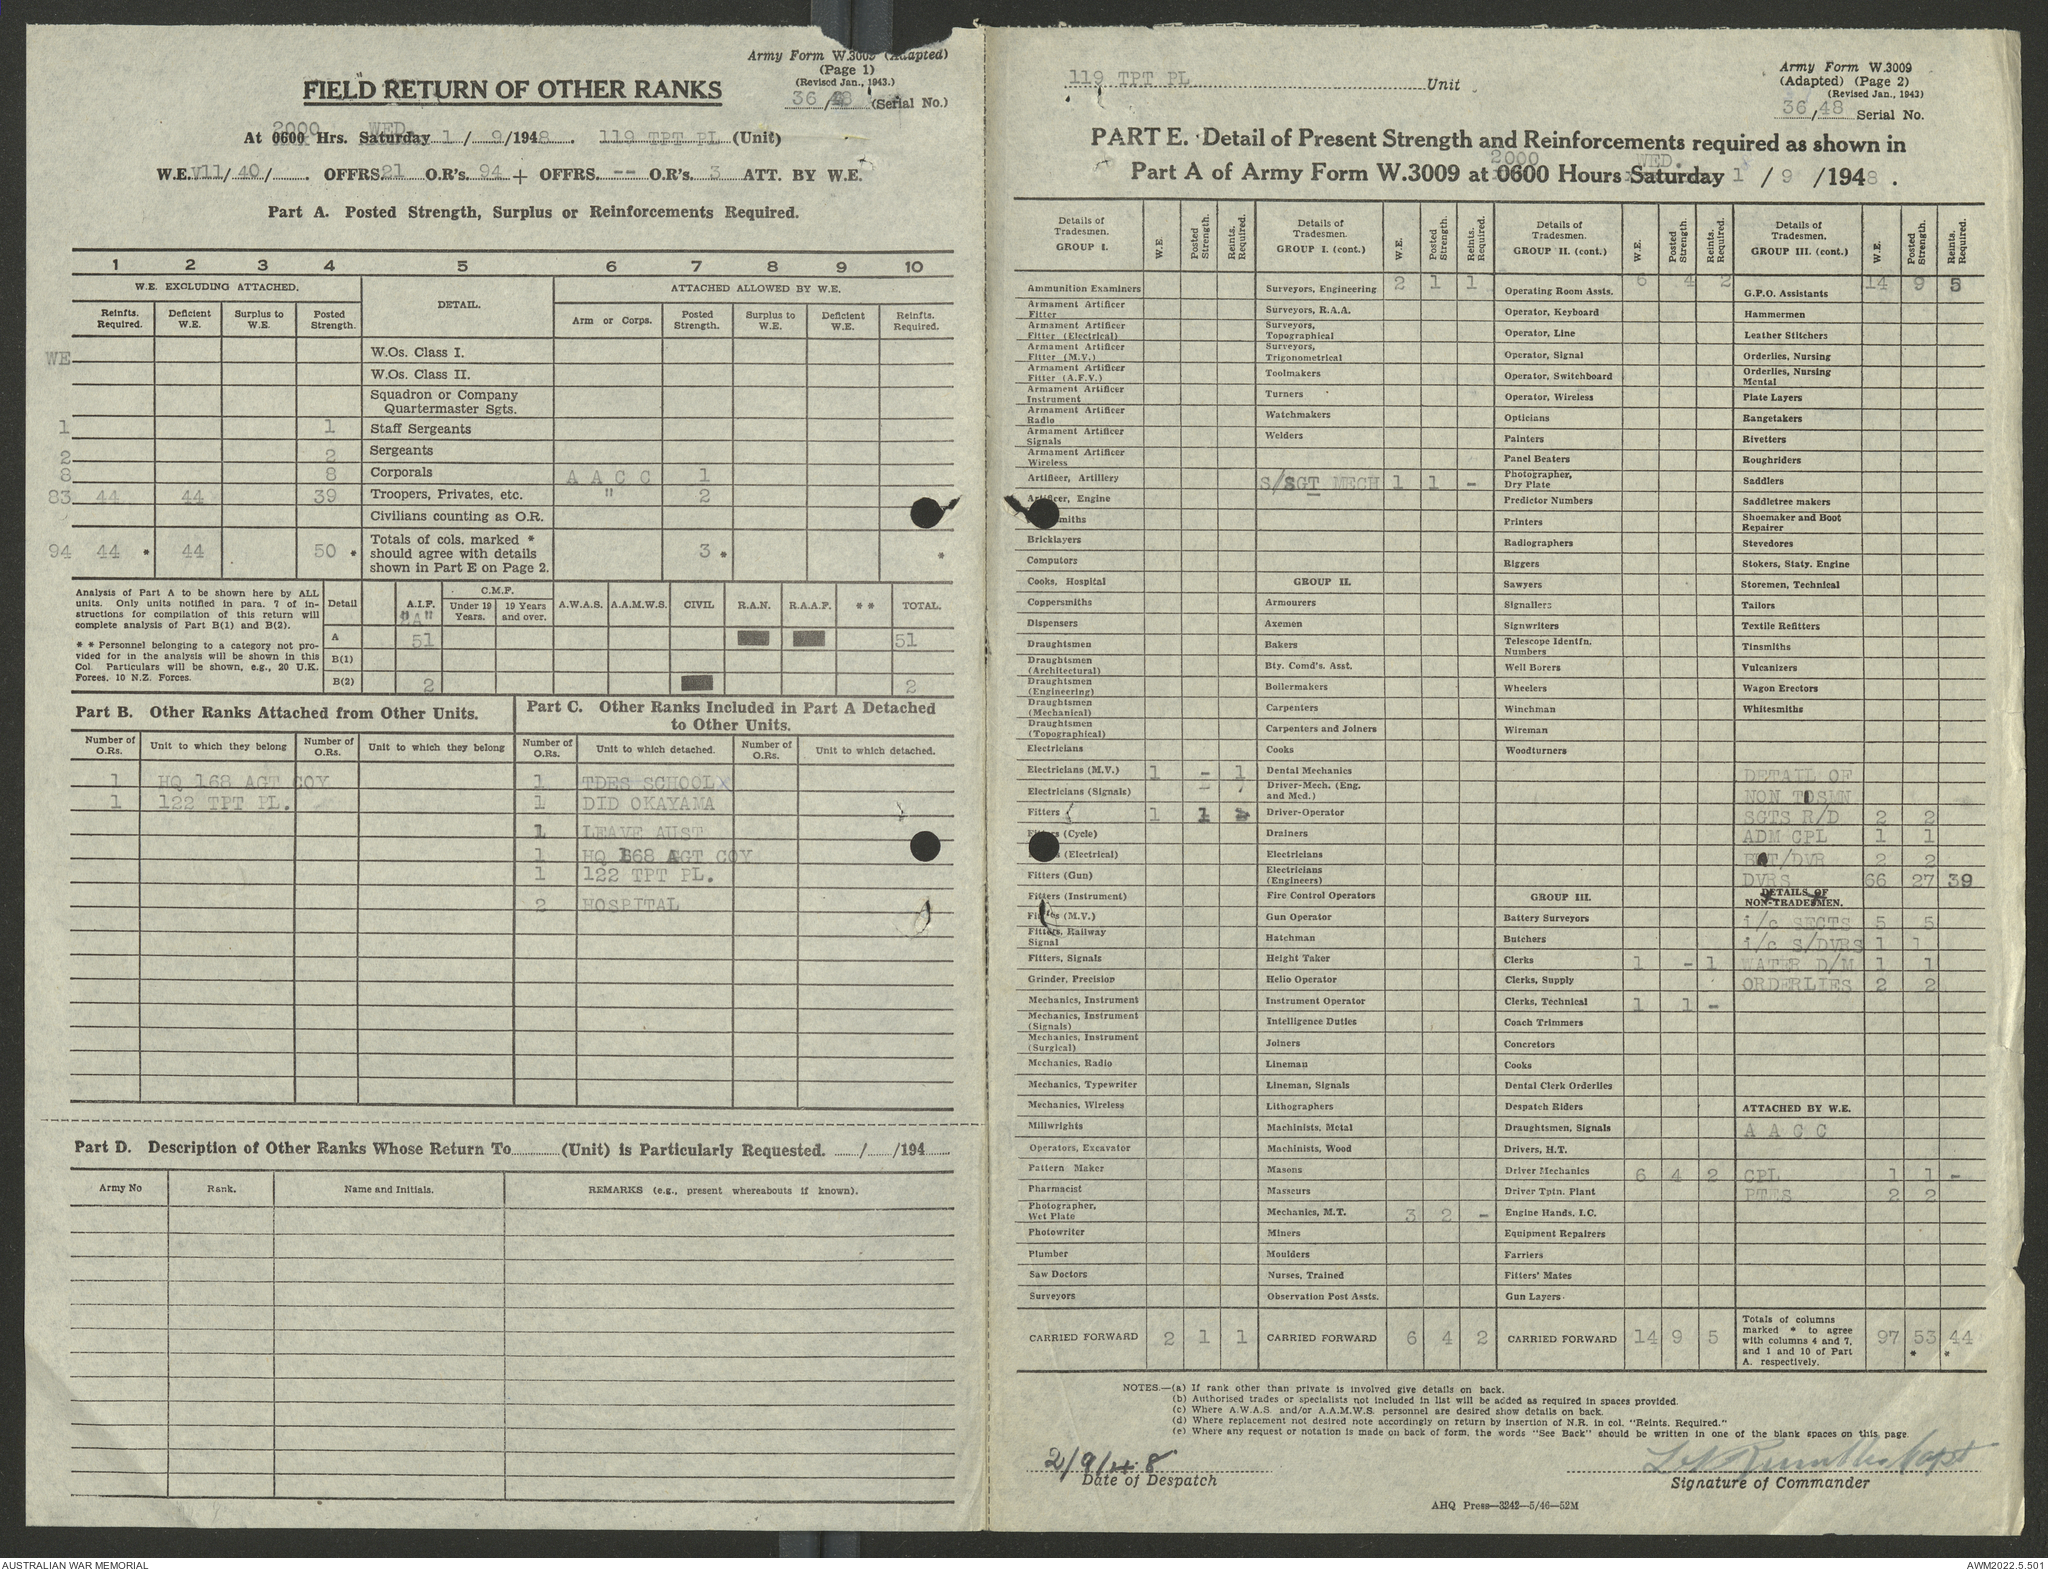 Army Form W.3009 (Adapted)
(Page 1)
(Revised Jan., 1943.)
36/48 (Serial No.)
FIELD RETURN OF OTHER RANKS
2000 WED.
At 0600 Hrs. Saturday 1/9/1948. 119 TPT PL (Unit)
W.E. V11/40/ OFFRS. 21 O.R's. 94 + OFFRS. -- O.R's. 3 ATT. BY W.E.
Part A. Posted Strength, Surplus or Reinforcements Required.
1 2 3 4 5 6 7 8 9 10
W.E. EXCLUDING ATTACHED. DETAIL. ATTACHED ALLOWED BY W.E.
Reinfts. Required. Deficient W.E. Surplus to W.E. Posted Strength. Arm or Corps. Posted Strength. Surplus to W.E. Deficient W.E. Reinfts. Required.
WE W.Os. Class I.
W.Os. Class II.
Squadron or Company Quartermaster Sgts.
1 1 Staff Sergeants
2 2 Sergeants
8 8 Corporals A A C C 1
83 44 44 39 Troopers, Privates, etc. " 2
Civilians counting as O.R.
94 44 * 44 50 * Totals of cols. marked * should agree with details shown in Part E on Page 2. 3 * *
Analysis of Part A to be shown here by ALL units. Only units notified in para. 7 of instructions for compilation of this return will complete analysis of Part B(1) and B(2).
* * Personnel belonging to a category not provided for in the analysis will be shown in this Col. Particulars will be shown, e.g., 20 U.K. Forces, 10 N.Z. Forces.
Detail A.I.F. "A" C.M.F. Under 19 Years. 19 Years and over. A.W.A.S. A.A.M.W.S. CIVIL R.A.N. R.A.A.F. * * TOTAL.
A 51 51
B(1)
B(2) 2 2
Part B. Other Ranks Attached from Other Units.
Number of O.Rs. Unit to which they belong Number of O.Rs. Unit to which they belong
1 HQ 168 AGT COY
1 122 TPT PL.
Part C. Other Ranks Included in Part A Detached to Other Units.
Number of O.Rs. Unit to which detached. Number of O.Rs. Unit to which detached.
1 TDES SCHOOL
1 DID OKAYAMA
1 LEAVE AUST
1 HQ 168 AGT COY
1 122 TPT PL.
2 HOSPITAL
Part D. Description of Other Ranks Whose Return To (Unit) is Particularly Requested. / /194
Army No Rank. Name and Initials. REMARKS (e.g., present whereabouts if known).
119 TPT PL Unit
Army Form W.3009
(Adapted) (Page 2)
(Revised Jan., 1943)
36/48 Serial No.
PART E. Detail of Present Strength and Reinforcements required as shown in
2000 WED.
Part A of Army Form W.3009 at 0600 Hours Saturday 1/9/1948.
Details of Tradesmen. GROUP I. W.E. Posted Strength. Reints. Required.
Ammunition Examiners
Armament Artificer Fitter
Armament Artificer Fitter (Electrical)
Armament Artificer Fitter (M.V.)
Armament Artificer Fitter (A.F.V.)
Armament Artificer Instrument
Armament Artificer Radio
Armament Artificer Signals
Armament Artificer Wireless
Artificer, Artillery
Artificer, Engine
Bricklayers
Computors
Cooks, Hospital
Coppersmiths
Dispensers
Draughtsmen
Draughtsmen (Architectural)
Draughtsmen (Engineering)
Draughtsmen (Mechanical)
Draughtsmen (Topographical)
Electricians
Electricians (M.V.) 1 - 1
Electricians (Signals)
Fitters 1 1
Fitters (Cycle)
(Electrical)
Fitters (Gun)
Fitters (Instrument)
Fitters (M.V.)
Fitters, Railway Signal
Fitters, Signals
Grinder, Precision
Mechanics, Instrument
Mechanics, Instrument (Signals)
Mechanics, Instrument (Surgical)
Mechanics, Radio
Mechanics, Typewriter
Mechanics, Wireless
Millwrights
Operators, Excavator
Pattern Maker
Pharmacist
Photographer, Wet Plate
Photowriter
Plumber
Saw Doctors
Surveyors
CARRIED FORWARD 2 1 1
Details of Tradesmen. GROUP I. (cont.) W.E. Posted Strength. Reints. Required.
Surveyors, Engineering 2 1 1
Surveyors, R.A.A.
Surveyors, Topographical
Surveyors, Trigonometrical
Toolmakers
Turners
Watchmakers
Welders
S/SGT MECH 1 1 -
GROUP II.
Armourers
Axemen
Bakers
Bty. Comd's. Asst.
Boilermakers
Carpenters
Carpenters and Joiners
Cooks
Dental Mechanics
Driver-Mech. (Eng. and Med.)
Driver-Operator
Drainers
Electricians
Electricians (Engineers)
Fire Control Operators
Gun Operator
Hatchman
Height Taker
Helio Operator
Instrument Operator
Intelligence Duties
Joiners
Lineman
Lineman, Signals
Lithographers
Machinists, Metal
Machinists, Wood
Masons
Masseurs
Mechanics, M.T. 3 2 -
Miners
Moulders
Nurses, Trained
Observation Post Assts.
CARRIED FORWARD 6 4 2
Details of Tradesmen. GROUP II. (cont.) W.E. Posted Strength. Reints. Required.
Operating Room Assts. 6 4 2
Operator, Keyboard
Operator, Line
Operator, Signal
Operator, Switchboard
Operator, Wireless
Opticians
Painters
Panel Beaters
Photographer, Dry Plate
Predictor Numbers
Printers
Radiographers
Riggers
Sawyers
Signallers
Signwriters
Telescope Identfn. Numbers
Well Borers
Wheelers
Winchman
Wireman
Woodturners
GROUP III.
Battery Surveyors
Butchers
Clerks 1 - 1
Clerks, Supply
Clerks, Technical 1 1 -
Coach Trimmers
Concretors
Cooks
Dental Clerk Orderlies
Despatch Riders
Draughtsmen, Signals
Drivers, H.T.
Driver Mechanics 6 4 2
Driver Tptn. Plant
Engine Hands, I.C.
Equipment Repairers
Farriers
Fitters' Mates
Gun Layers
CARRIED FORWARD 14 9 5
Details of Tradesmen. GROUP III. (cont.) W.E. Posted Strength. Reints. Required.
G.P.O. Assistants 14 9 5
Hammermen
Leather Stitchers
Orderlies, Nursing
Orderlies, Nursing Mental
Plate Layers
Rangetakers
Rivetters
Roughriders
Saddlers
Saddletree makers
Shoemaker and Boot Repairer
Stevedores
Stokers, Staty. Engine
Storemen, Technical
Tailors
Textile Refitters
Tinsmiths
Vulcanizers
Wagon Erectors
Whitesmiths
DETAIL OF
NON TDSMN
SGTS R/D 2 2
ADM CPL 1 1
BAT/DVR 2 2
DVRS 66 27 39
DETAILS OF NON-TRADESMEN.
i/c SECTS 5 5
i/c S/DVRS 1 1
WATER D/M 1 1
ORDERLIES 2 2
ATTACHED BY W.E.
A A C C
CPL 1 1 -
PTES 2 2
Totals of columns marked * to agree with columns 4 and 7, and 1 and 10 of Part A. respectively. 97 53 * 44 *
NOTES.—(a) If rank other than private is involved give details on back.
(b) Authorised trades or specialists not included in list will be added as required in spaces provided.
(c) Where A.W.A.S. and/or A.A.M.W.S. personnel are desired show details on back.
(d) Where replacement not desired note accordingly on return by insertion of N.R. in col. "Reints. Required."
(e) Where any request or notation is made on back of form, the words "See Back" should be written in one of the blank spaces on this page.
2/9/48
Date of Despatch
Capt
Signature of Commander
AHQ Press—3242—5/46—52M
AUSTRALIAN WAR MEMORIAL
AWM2022.5.501